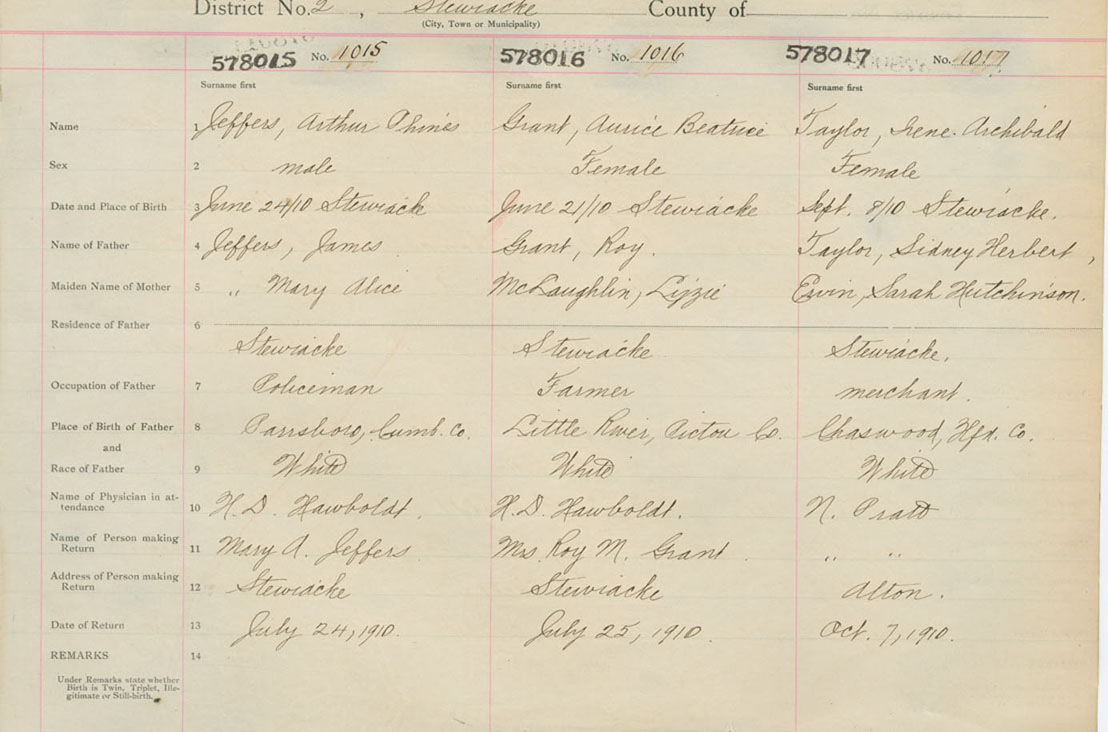 District No. 2, Stewiacke County of
(City, Town or Municipality)
578015 No. 1015 578016 No. 1016 578017 No. 1017
Surname first Surname first Surname first
Name 1 Jeffers, Arthur Phines Grant, Aurice Beatrice Taylor, Irene Archibald
Sex 2 male Female Female
Date and Place of Birth 3 June 24/10 Stewiacke June 21/10 Stewiacke Sept. 8/10 Stewiacke.
Name of Father 4 Jeffers, James Grant, Roy. Taylor, Sidney Herbert,
Maiden Name of Mother 5 " Mary Alice McLaughlin, Lizzie Ervin, Sarah Hutchinson.
Residence of Father 6
Stewiacke Stewiacke Stewiacke.
Occupation of Father 7 Policeman Farmer merchant.
Place of Birth of Father 8 Parrsboro, Cumb. Co. Little River, Pictou Co. Chaswood, Hfx. Co.
and
Race of Father 9 White White White
Name of Physician in at-
tendance 10 H.D. Hawboldt. H.D. Hawboldt. N. Pratt
Name of Person making
Return 11 Mary A. Jeffers Mrs Roy M. Grant " "
Address of Person making
Return 12 Stewiacke Stewiacke Alton.
Date of Return 13 July 24, 1910. July 25, 1910. Oct. 7, 1910.
REMARKS 14
Under Remarks state whether
Birth is Twin, Triplet, Ille-
gitimate or Still-birth.